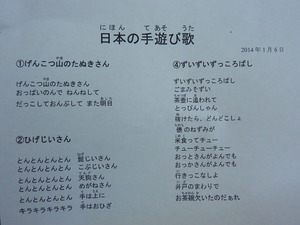 にほん　てあそ　うた
日本の手遊び歌
2014年1月6日
①げんこつ山のたぬきさん
げんこつ山のたぬきさん
おっぱいのんで ねんねして
だっこしておんぶして また明日
②ひげじいさん
とんとんとんとん 髭じいさん
とんとんとんとん こぶじいさん
とんとんとんとん 天狗さん
とんとんとんとん めがねさん
とんとんとんとん 手は上に
キラキラキラキラ 手はおひざ
④ずいずいずっころばし
ずいずいずっころばし
ごまみそずい
茶壺に追われて
とっぴんしゃん
抜けたら、どんどこしょ
俵のねずみが
米食ってチュー
チューチューチュー
おっとさんがよんでも
おっかさんがよんでも
行きっこなしよ
井戸のまわりで
お茶碗欠いたのだぁれ